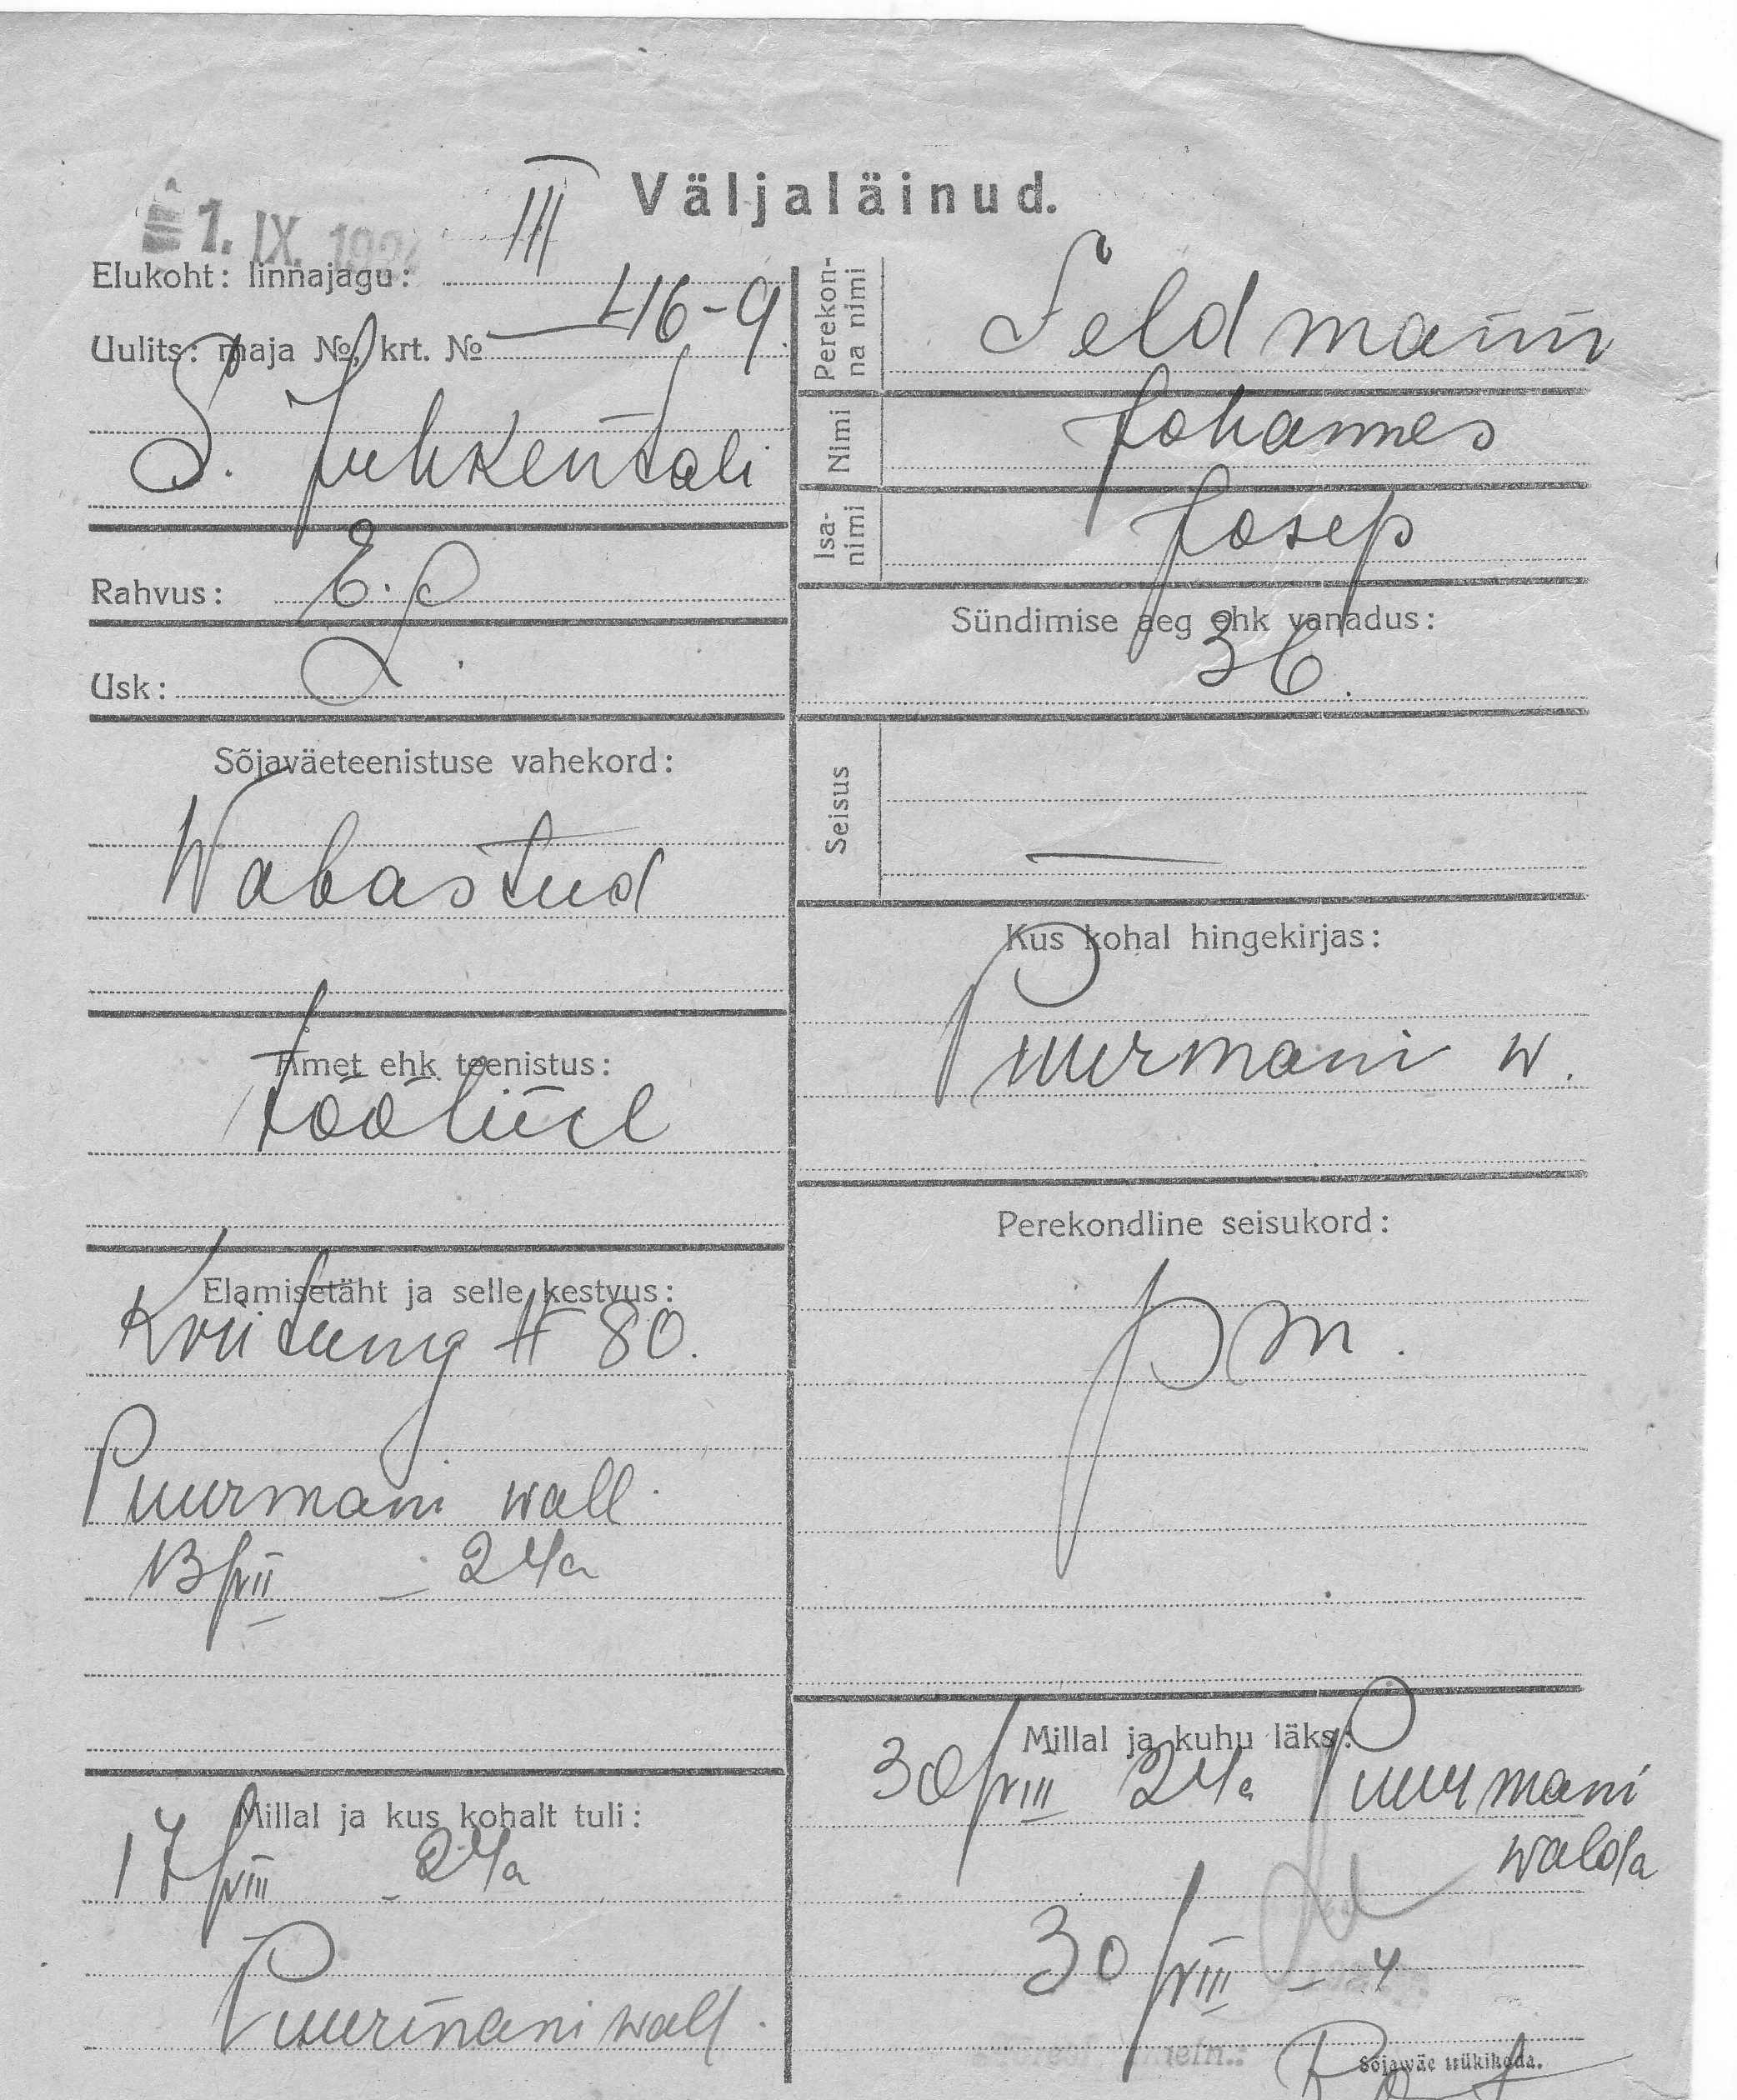 Väljaläinud.
1. IX. 192
Elukoht: linnajagu: III
Uulits: maja №, krt. № 46-9
S. Juhkentali
Rahvus: E.
Usk: L.
Sõjaväeteenistuse vahekord:
Wabastud
Amet ehk teenistus:
tööline
Elamisetäht ja selle kestvus:
№ 80.
Puurmani wall.
13/VII - 24a
Millal ja kus kohalt tuli:
17/VIII - 24a
Puurmani wall.
Perekonna nimi
Feldmann
Nimi
Johannes
Isanimi
Josep
Sündimise aeg ehk vanadus:
36.
Seisus
—
Kus kohal hingekirjas:
Puurmani w.
Perekondline seisukord:
pm.
Millal ja kuhu läks:
30/VIII 24a Puurmani
walda
30/VIII - 4
Sõjawäe trükikoda.